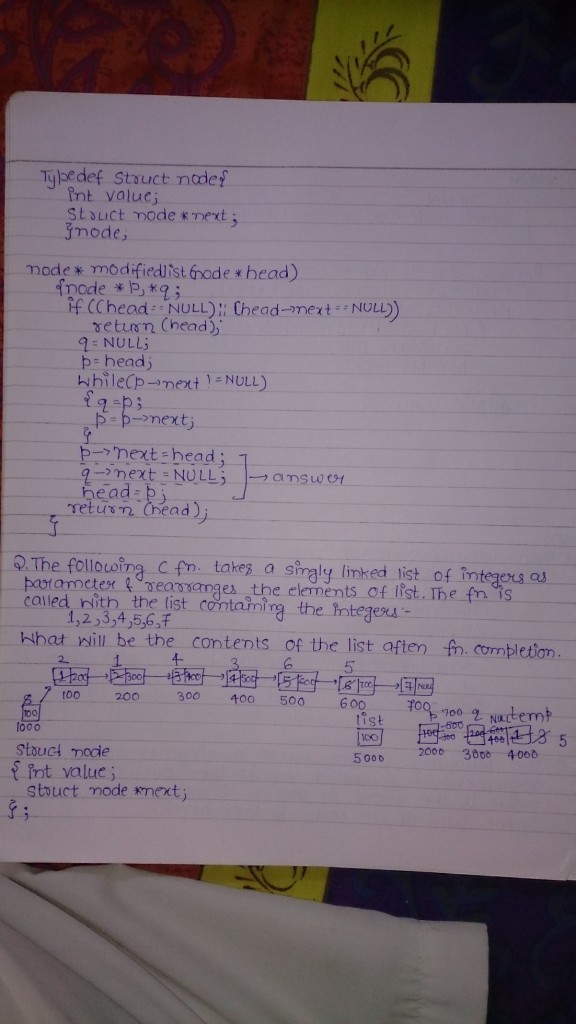 Typedef Struct node{
int value;
Struct node *next;
}node;
node* modifiedlist(node *head)
{node *p, *q;
if ((head == NULL) || (head→next == NULL))
return (head);
q = NULL;
p = head;
While(p→next != NULL)
{ q = p;
p = p→next;
}
p→next = head;
q→next = NULL; → answer
head = p;
return (head);
}
Q. The following C fn. takes a singly linked list of integers as
parameter & rearranges the elements of list. The fn is
called with the list containing the integers:-
1,2,3,4,5,6,7
What will be the contents of the list after fn. completion.
2 1 4 3 6 5
1 200 → 2 300 → 3 400 → 4 500 → 5 600 → 6 700 → 7 NULL
100 200 300 400 500 600 700
100
1000
list p 700 q NULL temp
100 5
5000 2000 3000 4000
Struct node
{ int value;
Struct node *next;
};